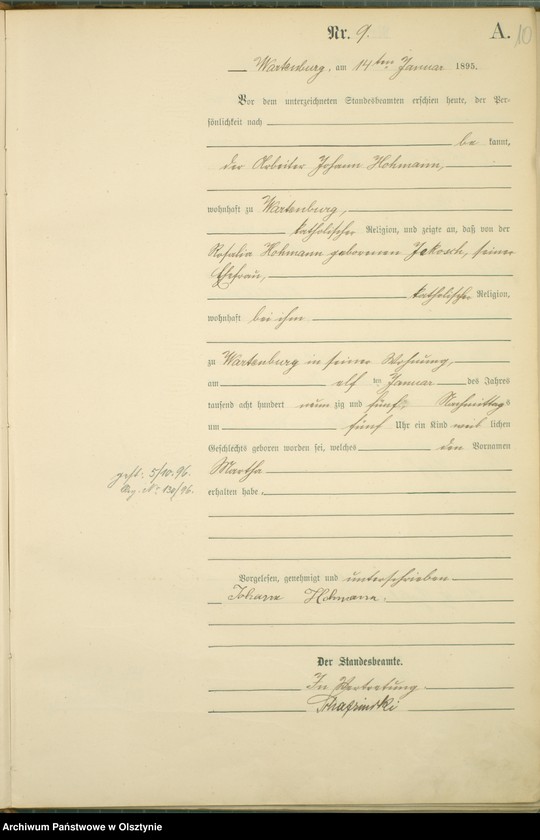 Nr. 9. A. 10
Wartenburg, am 14ten Januar 1895.
Vor dem unterzeichneten Standesbeamten erschien heute, der Per-
sönlichkeit nach
be kannt,
der Arbeiter Johann Hohmann,
wohnhaft zu Wartenburg,
katholischer Religion, und zeigte an, daß von der
Rosalia Hohmann geborenen Jekosch, seiner
Ehefrau,
katholischer Religion,
wohnhaft bei ihm
zu Wartenburg in seiner Wohnung,
am elf ten Januar des Jahres
tausend acht hundert neun zig und fünf, Nachmittags
um fünf Uhr ein Kind weib lichen
Geschlechts geboren worden sei, welches den Vornamen
Martha
gest. 5/10.96.
Reg. No. 130/96.
erhalten habe.
Vorgelesen, genehmigt und unterschrieben
Johann Hohmann.
Der Standesbeamte.
In Vertretung
Archiwum Państwowe w Olsztynie